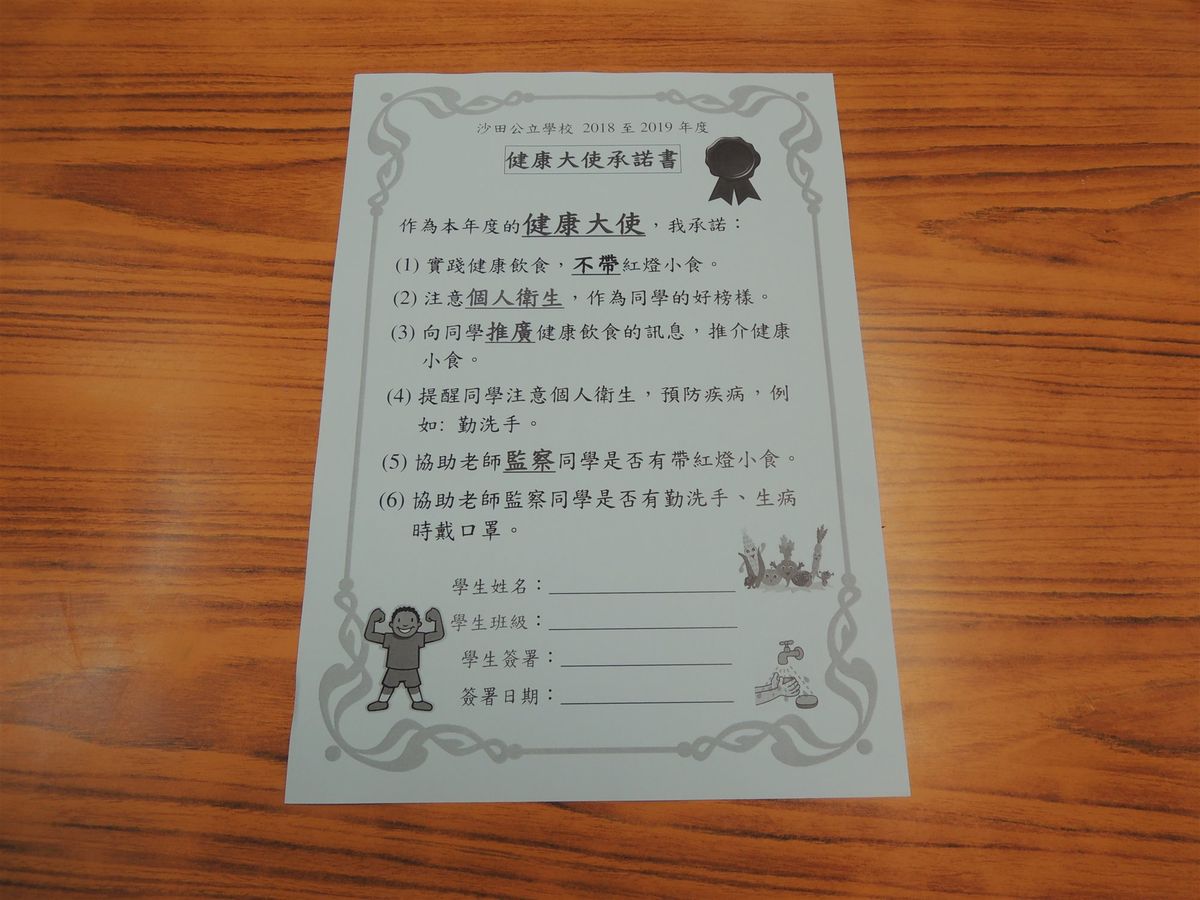 沙田公立學校 2018 至 2019 年度
健康大使承諾書
作為本年度的健康大使，我承諾：
(1) 實踐健康飲食，不帶紅燈小食。
(2) 注意個人衛生，作為同學的好榜樣。
(3) 向同學推廣健康飲食的訊息，推介健康
小食。
(4) 提醒同學注意個人衛生，預防疾病，例
如: 勤洗手。
(5) 協助老師監察同學是否有帶紅燈小食。
(6) 協助老師監察同學是否有勤洗手、生病
時戴口罩。
學生姓名：
學生班級：
學生簽署：
簽署日期：